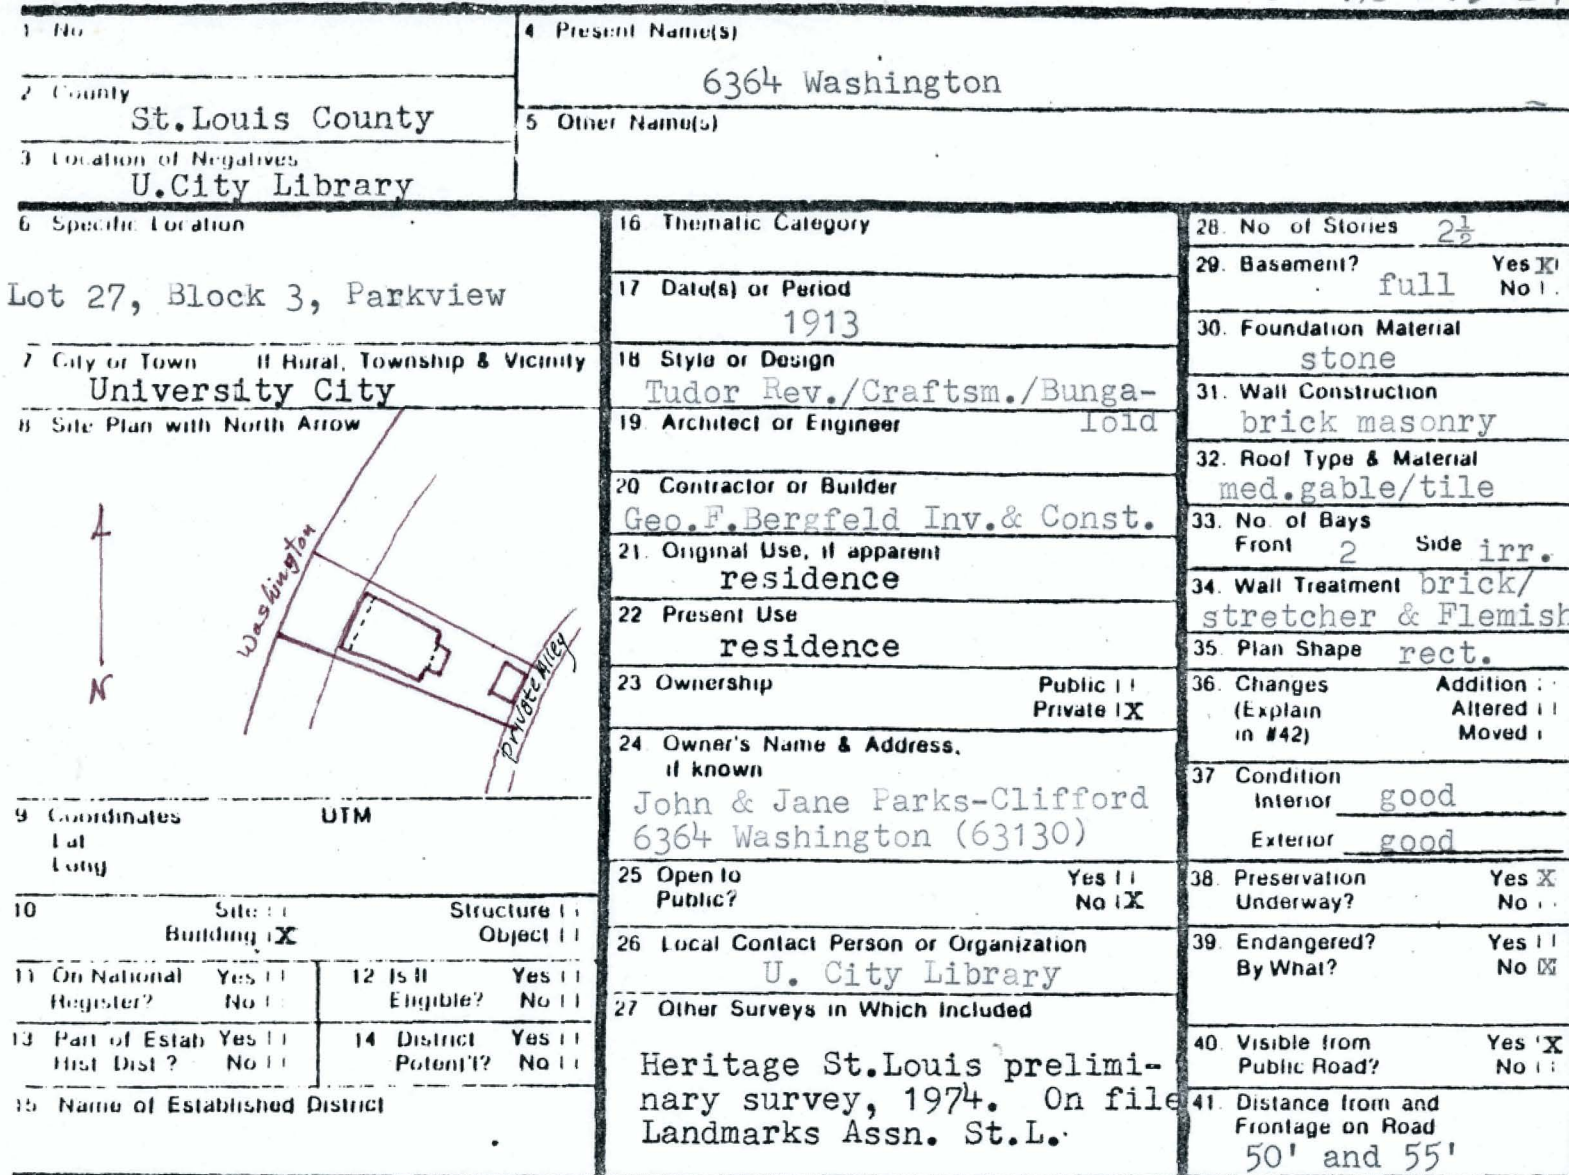 1 No
4 Present Name(s)
6364 Washington
2 County
St.Louis County
5 Other Name(s)
3 Location of Negatives
U.City Library
6 Specific Location
Lot 27, Block 3, Parkview
7 City or Town If Rural, Township & Vicinity
University City
8 Site Plan with North Arrow
Washington
Private Alley
N
9 Coordinates UTM
Lat
Long
10 Site
Structure
Building X
Object
11 On National Register? Yes No
12 Is It Eligible? Yes No
13 Part of Estab Hist Dist? Yes No
14 District Potent'l? Yes No
15 Name of Established District
16 Thematic Category
17 Date(s) or Period
1913
18 Style or Design
Tudor Rev./Craftsm./Bunga-
loid
19 Architect or Engineer
20 Contractor or Builder
Geo.F.Bergfeld Inv.& Const.
21. Original Use, if apparent
residence
22 Present Use
residence
23 Ownership Public
Private X
24 Owner's Name & Address,
if known
John & Jane Parks-Clifford
6364 Washington (63130)
25 Open to Yes
Public? No X
26 Local Contact Person or Organization
U. City Library
27 Other Surveys in Which Included
Heritage St.Louis prelimi-
nary survey, 1974. On file
Landmarks Assn. St.L.
28. No of Stories 2½
29. Basement? Yes X
full No
30. Foundation Material
stone
31. Wall Construction
brick masonry
32. Roof Type & Material
med.gable/tile
33. No of Bays
Front 2 Side irr.
34. Wall Treatment brick/
stretcher & Flemish
35. Plan Shape rect.
36. Changes Addition
(Explain Altered
in #42) Moved
37 Condition
Interior good
Exterior good
38. Preservation Yes X
Underway? No
39. Endangered? Yes
By What? No X
40. Visible from Yes X
Public Road? No
41. Distance from and
Frontage on Road
50' and 55'